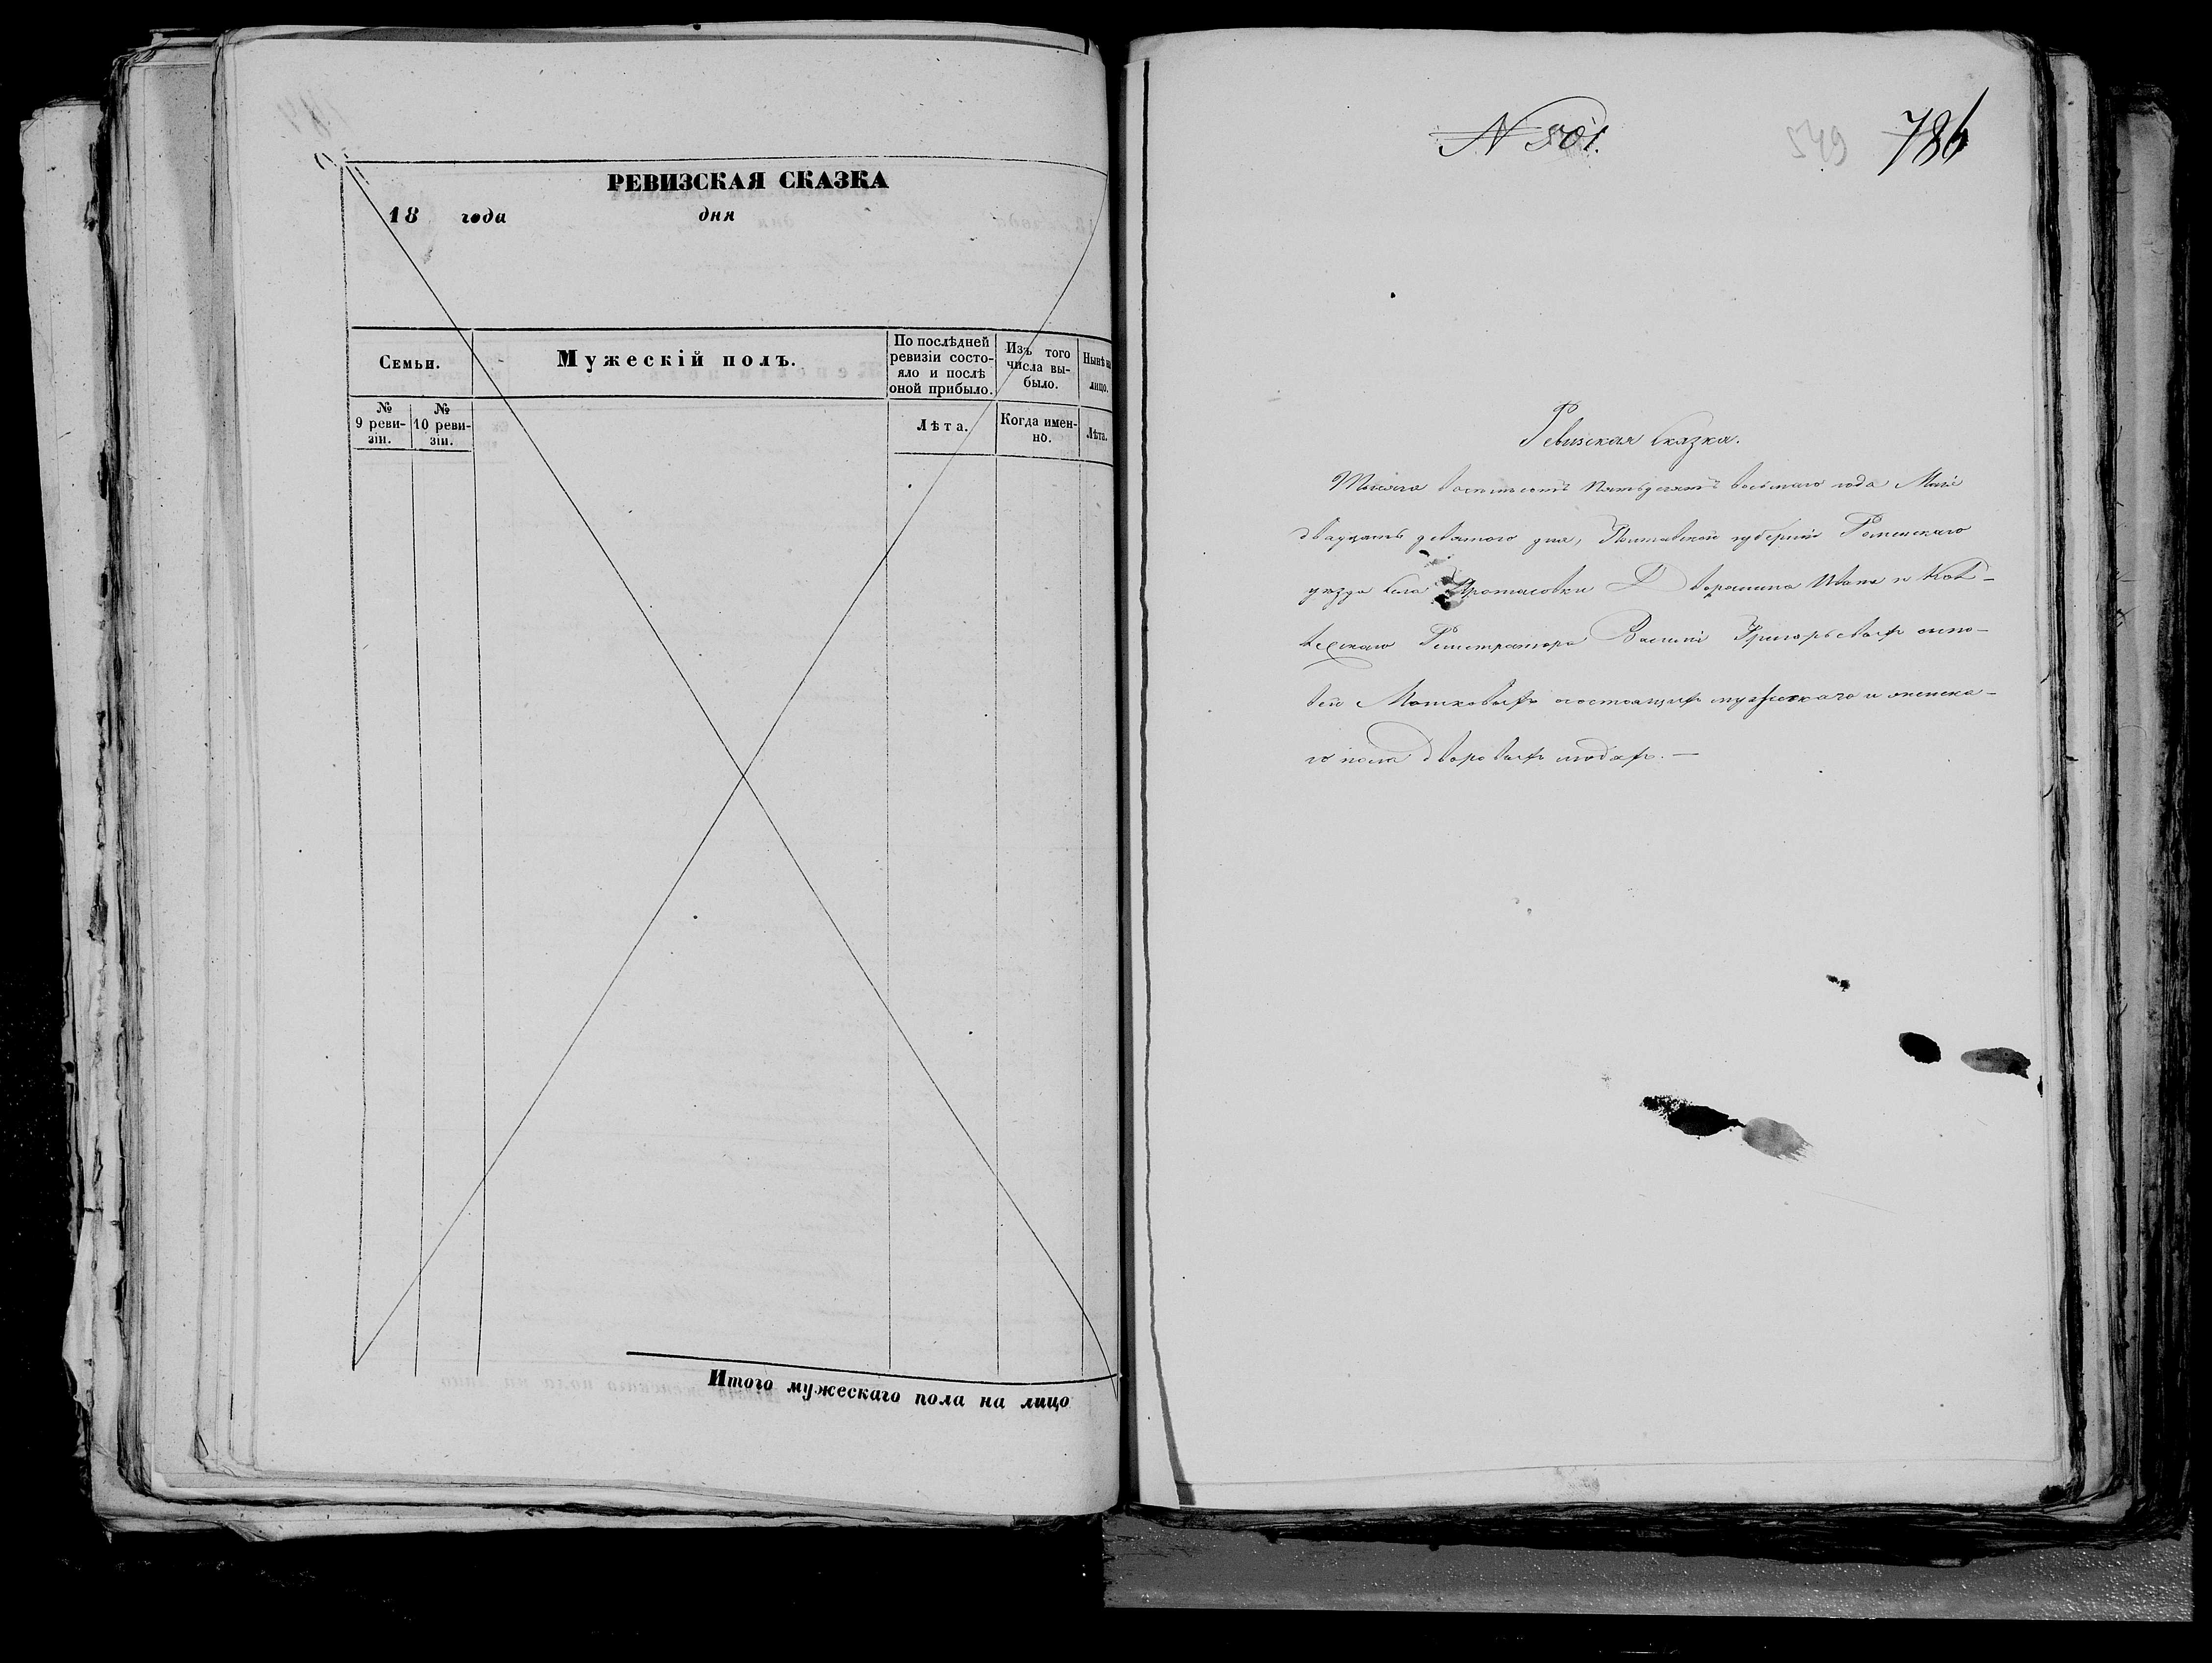 РЕВИЗСКАЯ СКАЗКА
18 года дня
Семьи.
Мужескій полъ.
По послѣдней
ревизіи состо-
яло и послѣ
оной прибыло.
Изъ того
числа вы-
было.
Нынѣ на
лицо.
№
9 реви-
зіи.
№
10 реви-
зіи.
Лѣта.
Когда имен-
но.
Лѣта.
Итого мужескаго пола на лицо
N 501.
549
786
Ревизская Сказка.
Тысяча восемьсотъ Пятьдесятъ восьмаго года Маія
двадцать девятого дня, Полтавской губерніи Роменскаго
уезда села Протасовки Дворянина Ивана и Кол-
лежскаго Регистратора Василія Григорьевыхъ сыно-
вей Мошковыхъ состоящихъ мужескаго и женска-
го пола дворовыхъ людяхъ. —